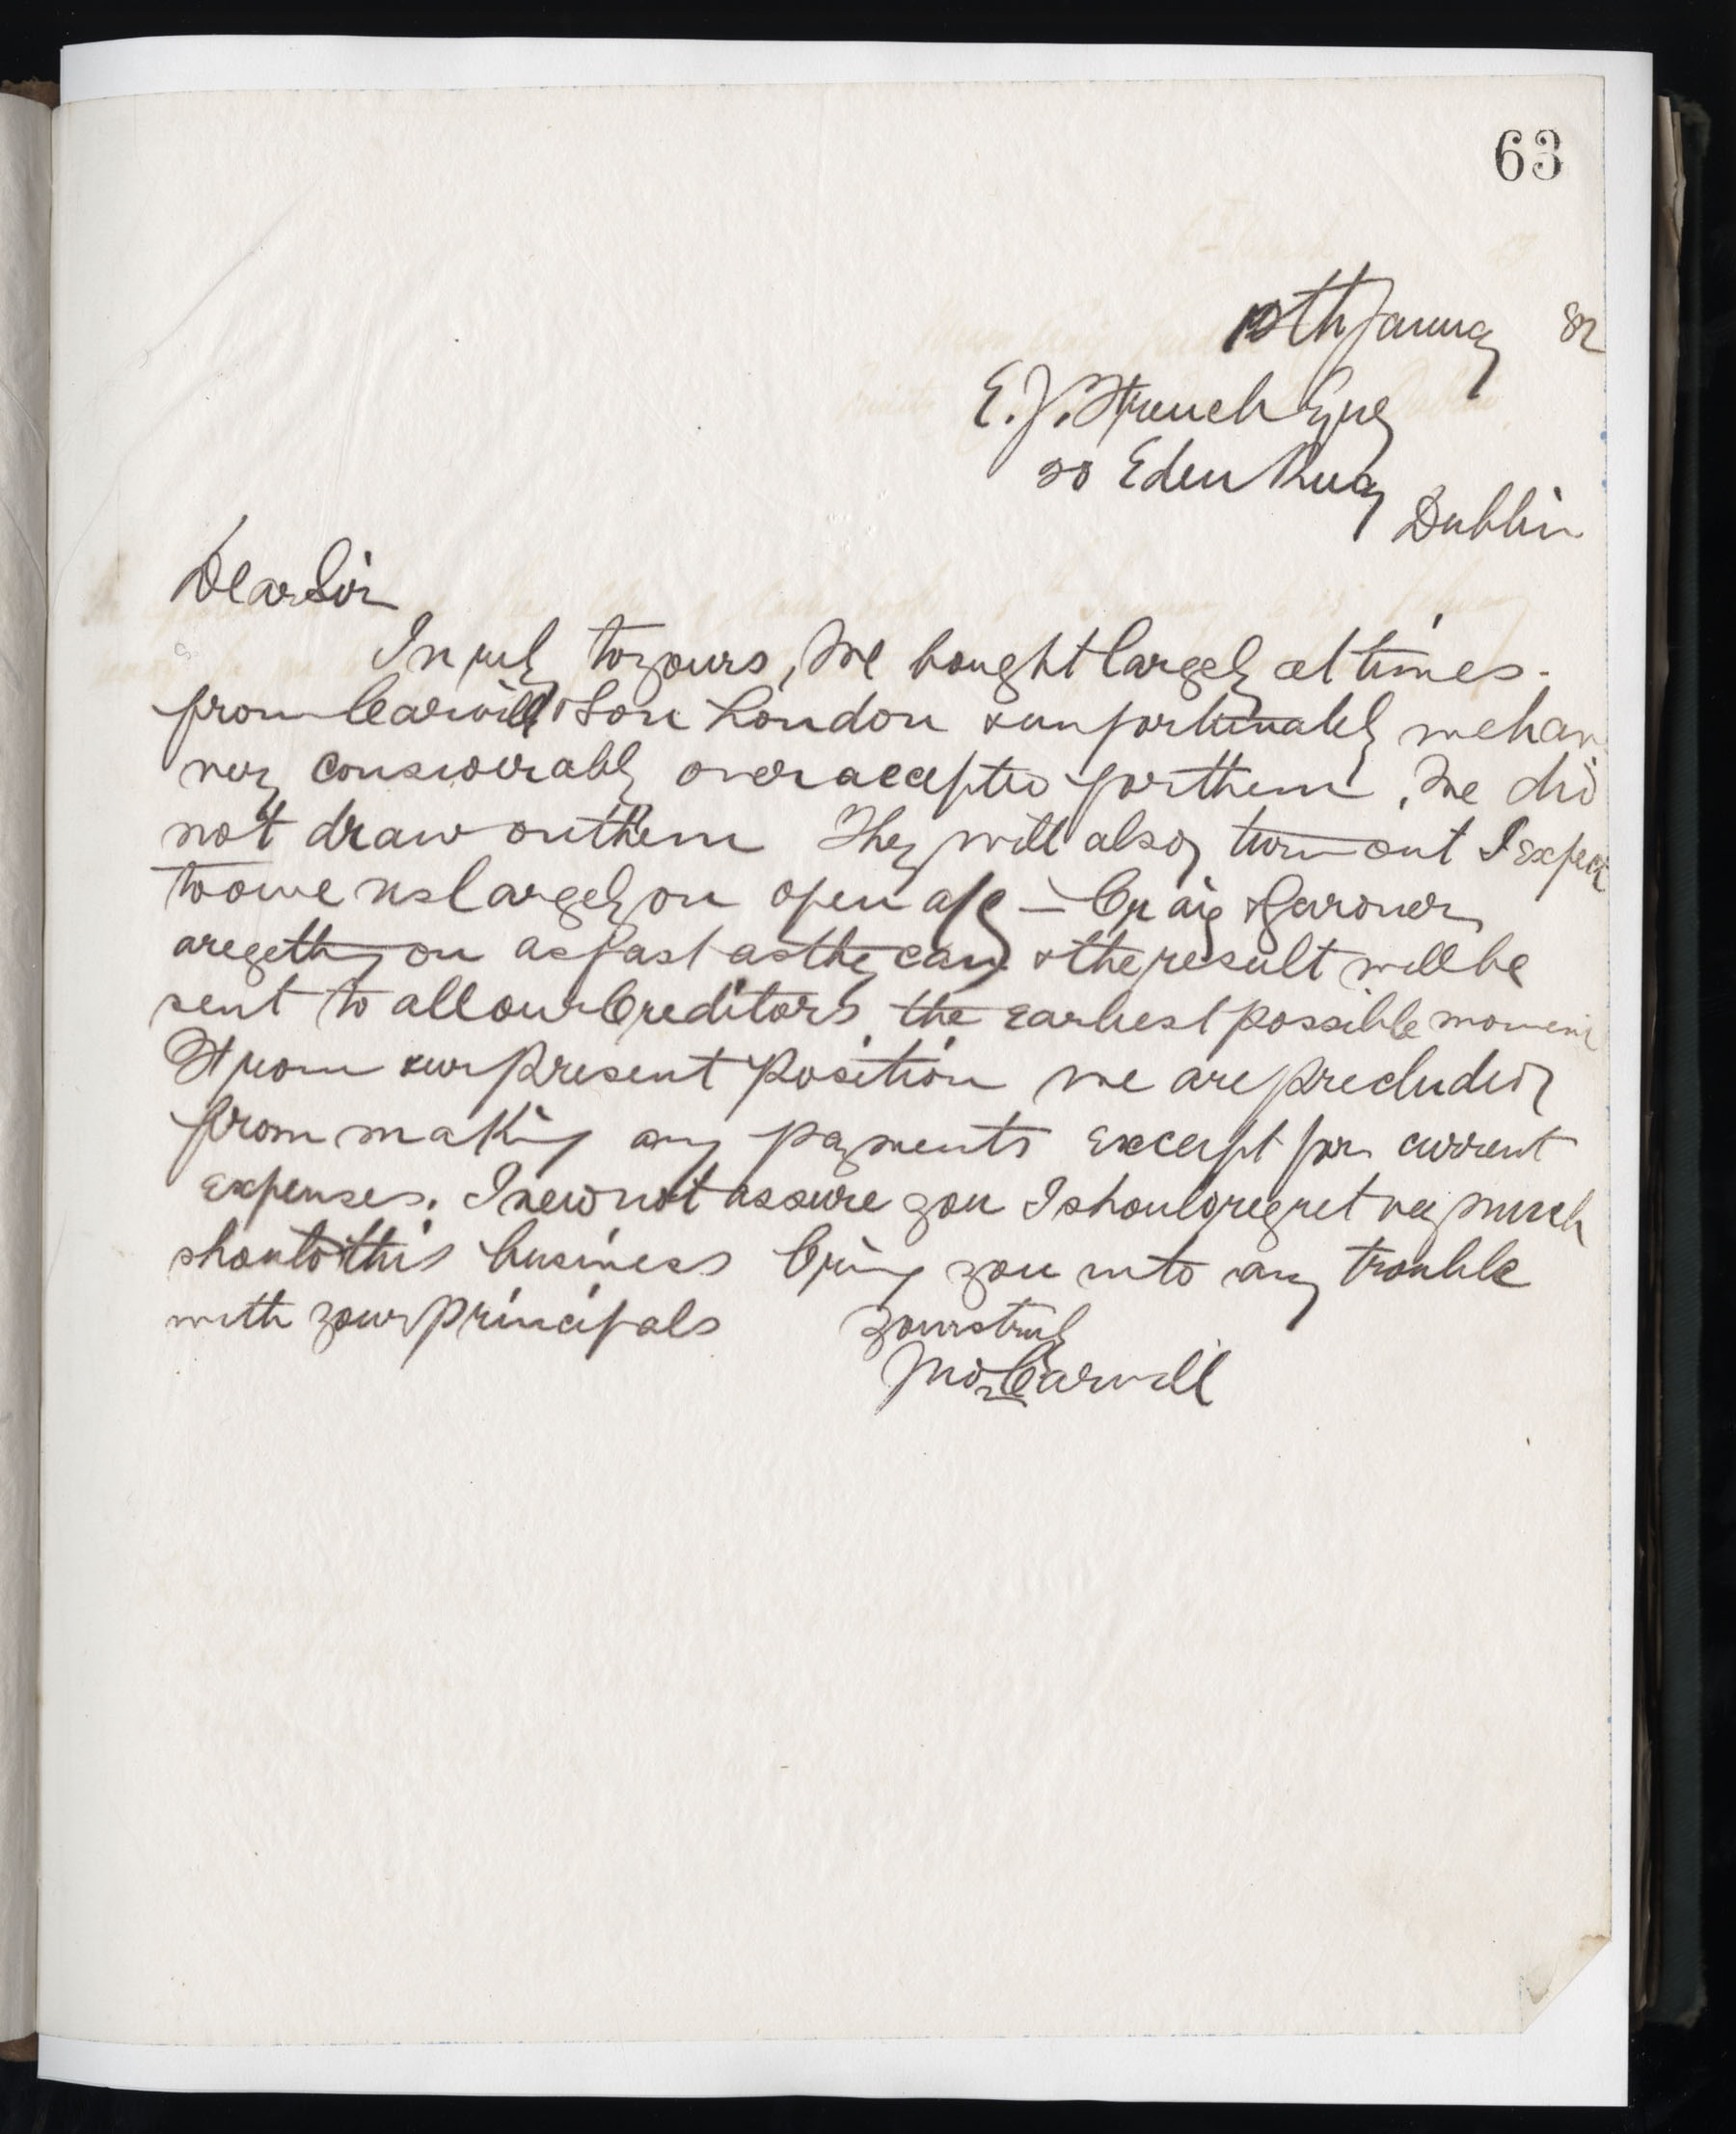 63
10th January 82
E. J. French Esqre
20 Eden Quay
Dublin
Dear Sir
In reply to yours, We bought largely at times.
from Carvill & Son London & unfortunately we have
very considerably over accepted for them, We did
not draw on them They will also, turn out I expect
to owe us largely on open a/c – Craig Gardner
are getting on as fast as they can & the result will be
sent to all our Creditors the earliest possible moment
From our present Position we are precluded
from making any payments except for current
expenses. I need not assure you I should regret very much
should this business bring you into any trouble
with your Principals
Yours truly
Carvill